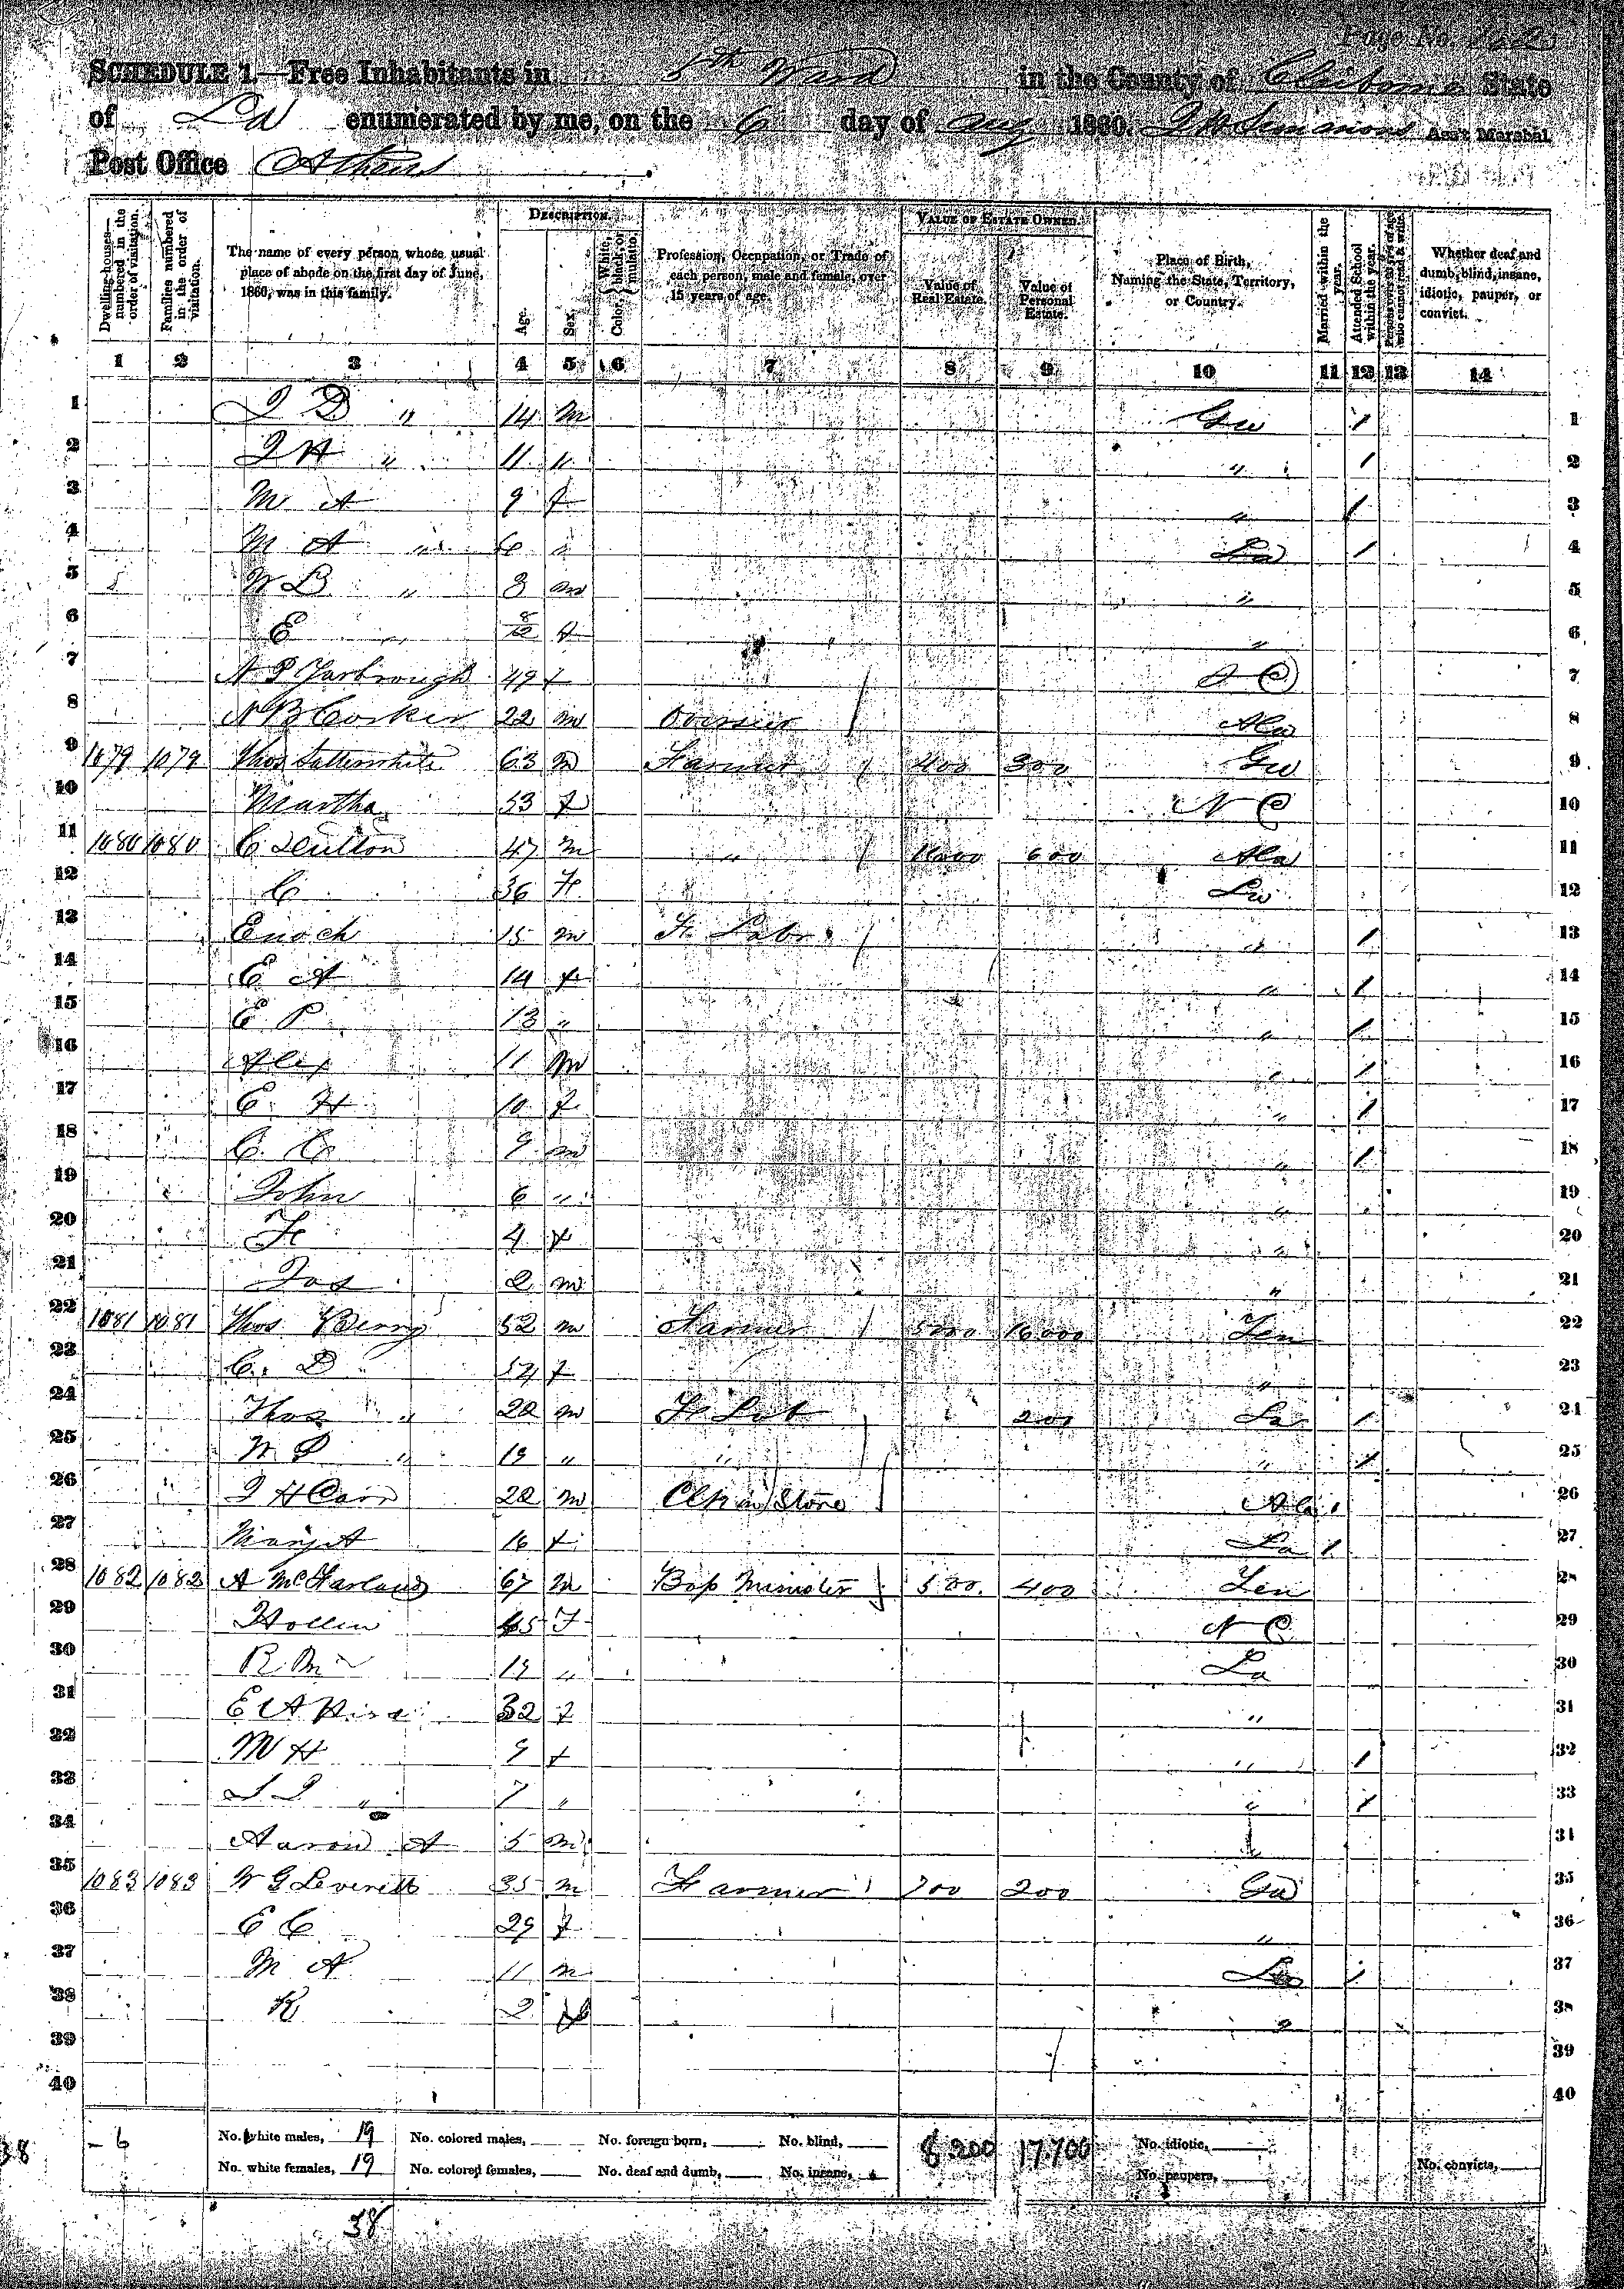 Page No.
SCHEDULE 1.—Free Inhabitants in 5th Ward in the County of Claiborne State
of La enumerated by me, on the 6 day of Aug 1860. Simmons Ass't Marshal
Post Office Athens
Dwelling-houses—numbered in the order of visitation.
Families numbered in the order of visitation.
The name of every person whose usual place of abode on the first day of June, 1860, was in this family.
DESCRIPTION.
Age.
Sex.
Color, White, black, or mulatto.
Profession, Occupation, or Trade of each person, male and female, over 15 years of age.
VALUE OF ESTATE OWNED.
Value of Real Estate.
Value of Personal Estate.
Place of Birth, Naming the State, Territory, or Country.
Married within the year.
Attended School within the year.
Persons over 20 y'rs of age who cannot read & write.
Whether deaf and dumb, blind, insane, idiotic, pauper, or convict.
1 2 3 4 5 6 7 8 9 10 11 12 13 14
1 J D " 14 m Ga / 1
2 J H " 11 " " / 2
3 M A 9 f " / 3
4 M A " 6 " La / 4
5 W B " 3 m " 5
6 E " 8/12 f " 6
7 A P Yarbrough 49 f S C 7
8 N B Corker 22 m Ala 8
9 1079 1079 Thos Satterwhite 63 m Farmer 400 300 Ga 9
10 Martha 53 f N C 10
11 1080 1080 C 47 m " 600 Ala 11
12 C 36 F La 12
13 Enoch 15 m F Labr " / 13
14 E A 14 f " / 14
15 E P 13 " " / 15
16 Alex 11 m " / 16
17 E H 10 f " / 17
18 C C 9 m " / 18
19 John 6 " " 19
20 F 4 f " 20
21 Jas 2 m " 21
22 1081 1081 Thos Berry 52 m Farmer 5000 16000 Ten 22
23 C. D 54 f " 23
24 Thos " 22 m F Lab 200 La / 24
25 W P " 19 " " " / 25
26 J H Cain 22 m Clk in Store Ala / 26
27 Margt A 16 f La / 27
28 1082 1082 A McFarland 67 m Bap Minister 500 400 Ten 28
29 Hollin 65 F N C 29
30 R. M 19 " La 30
31 E A 32 f " 31
32 M H 9 f " / 32
33 S J " 7 " " / 33
34 Aaron A 5 m 34
35 1083 1083 W G Leverett 35 m Farmer 700 200 Ga 35
36 E C 29 f " 36
37 M A 11 m La / 37
38 R 2 f " 38
39 39
40 40
38 - 6 No. white males, 19 No. colored males, No. foreign born, No. blind, 8,200 17,700 No. idiotic,
No. white females, 19 No. colored females, No. deaf and dumb, No. insane, No. paupers, No. convicts,
38